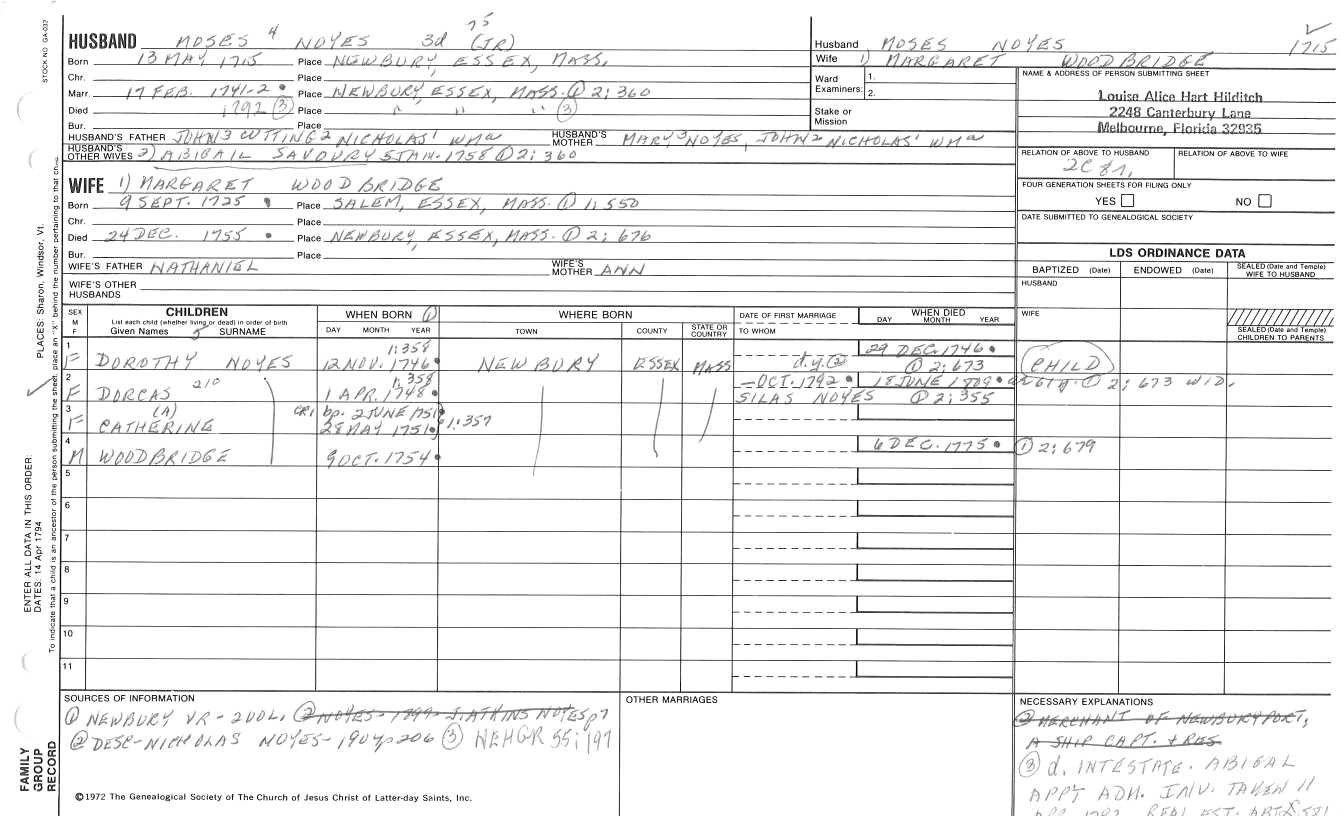 75
HUSBAND MOSES 4 NOYES 3d (JR)
Born 13 MAY 1715 Place NEWBURY, ESSEX, MASS.
Chr. Place
Marr. 17 FEB. 1741-2 Place NEWBURY, ESSEX, MASS. ① 2; 360
Died 1792 ③ Place " " " ③
Bur. Place
HUSBAND'S FATHER JOHN3 CUTTING2 NICHOLAS1 WMa HUSBAND'S MOTHER MARY3 NOYES, JOHN2 NICHOLAS1 WMa
HUSBAND'S OTHER WIVES 2) ABIGAIL SAVOURY 5 JAN. 1758 ① 2; 360
WIFE 1) MARGARET WOODBRIDGE
Born 9 SEPT. 1725 Place SALEM, ESSEX, MASS. ① 1; 550
Chr. Place
Died 24 DEC. 1755 Place NEWBURY, ESSEX, MASS. ① 2; 676
Bur. Place
WIFE'S FATHER NATHANIEL WIFE'S MOTHER ANN
WIFE'S OTHER HUSBANDS
Husband MOSES NOYES 1715
Wife 1) MARGARET WOODBRIDGE
Ward Examiners: 1.
2.
Stake or Mission
NAME & ADDRESS OF PERSON SUBMITTING SHEET
Louise Alice Hart Hilditch
2248 Canterbury Lane
Melbourne, Florida 32935
RELATION OF ABOVE TO HUSBAND RELATION OF ABOVE TO WIFE
FOUR GENERATION SHEETS FOR FILING ONLY
YES NO
DATE SUBMITTED TO GENEALOGICAL SOCIETY
LDS ORDINANCE DATA
BAPTIZED (Date) ENDOWED (Date) SEALED (Date and Temple) WIFE TO HUSBAND
HUSBAND
WIFE
SEALED (Date and Temple) CHILDREN TO PARENTS
SEX M F CHILDREN WHEN BORN ① WHERE BORN DATE OF FIRST MARRIAGE WHEN DIED
List each child (whether living or dead) in order of birth
Given Names 5 SURNAME DAY MONTH YEAR TOWN COUNTY STATE OR COUNTRY TO WHOM DAY MONTH YEAR
1 1; 358 29 DEC. 1746
F DOROTHY NOYES 12 NOV. 1746 NEWBURY ESSEX MASS d.y. ② ① 2; 673 CHILD
2 210 1; 358 — OCT. 1792 18 JUNE 1809 ① 2; 673 WID.
F DORCAS 1 APR. 1748 SILAS NOYES ① 2; 355
3 (A) CR1 bp. 2 JUNE 1751
F CATHERINE 28 MAY 1751 1; 357
4 6 DEC. 1775 ① 2; 679
M WOODBRIDGE 9 OCT. 1754
5
6
7
8
9
10
11
SOURCES OF INFORMATION
① NEWBURY VR - 2 VOL. ② NOYES - 1899 - J. ATKINS NOYES p7
② DESC - NICHOLAS NOYES - 1904 p206 ③ NEHGR 55; 197
OTHER MARRIAGES
NECESSARY EXPLANATIONS
② MERCHANT OF NEWBURYPORT,
A SHIP CAPT. + RES.
③ d. INTESTATE. ABIGAL
APPT ADM. INV. TAKEN 11
APR. 1792. REAL EST.
©1972 The Genealogical Society of The Church of Jesus Christ of Latter-day Saints, Inc.
STOCK NO. GA-037
PLACES: Sharon, Windsor, Vt.
ENTER ALL DATA IN THIS ORDER:
DATES: 14 Apr 1794
To indicate that a child is an ancestor of the person submitting the sheet, place an "X" behind the number pertaining to that
FAMILY GROUP RECORD